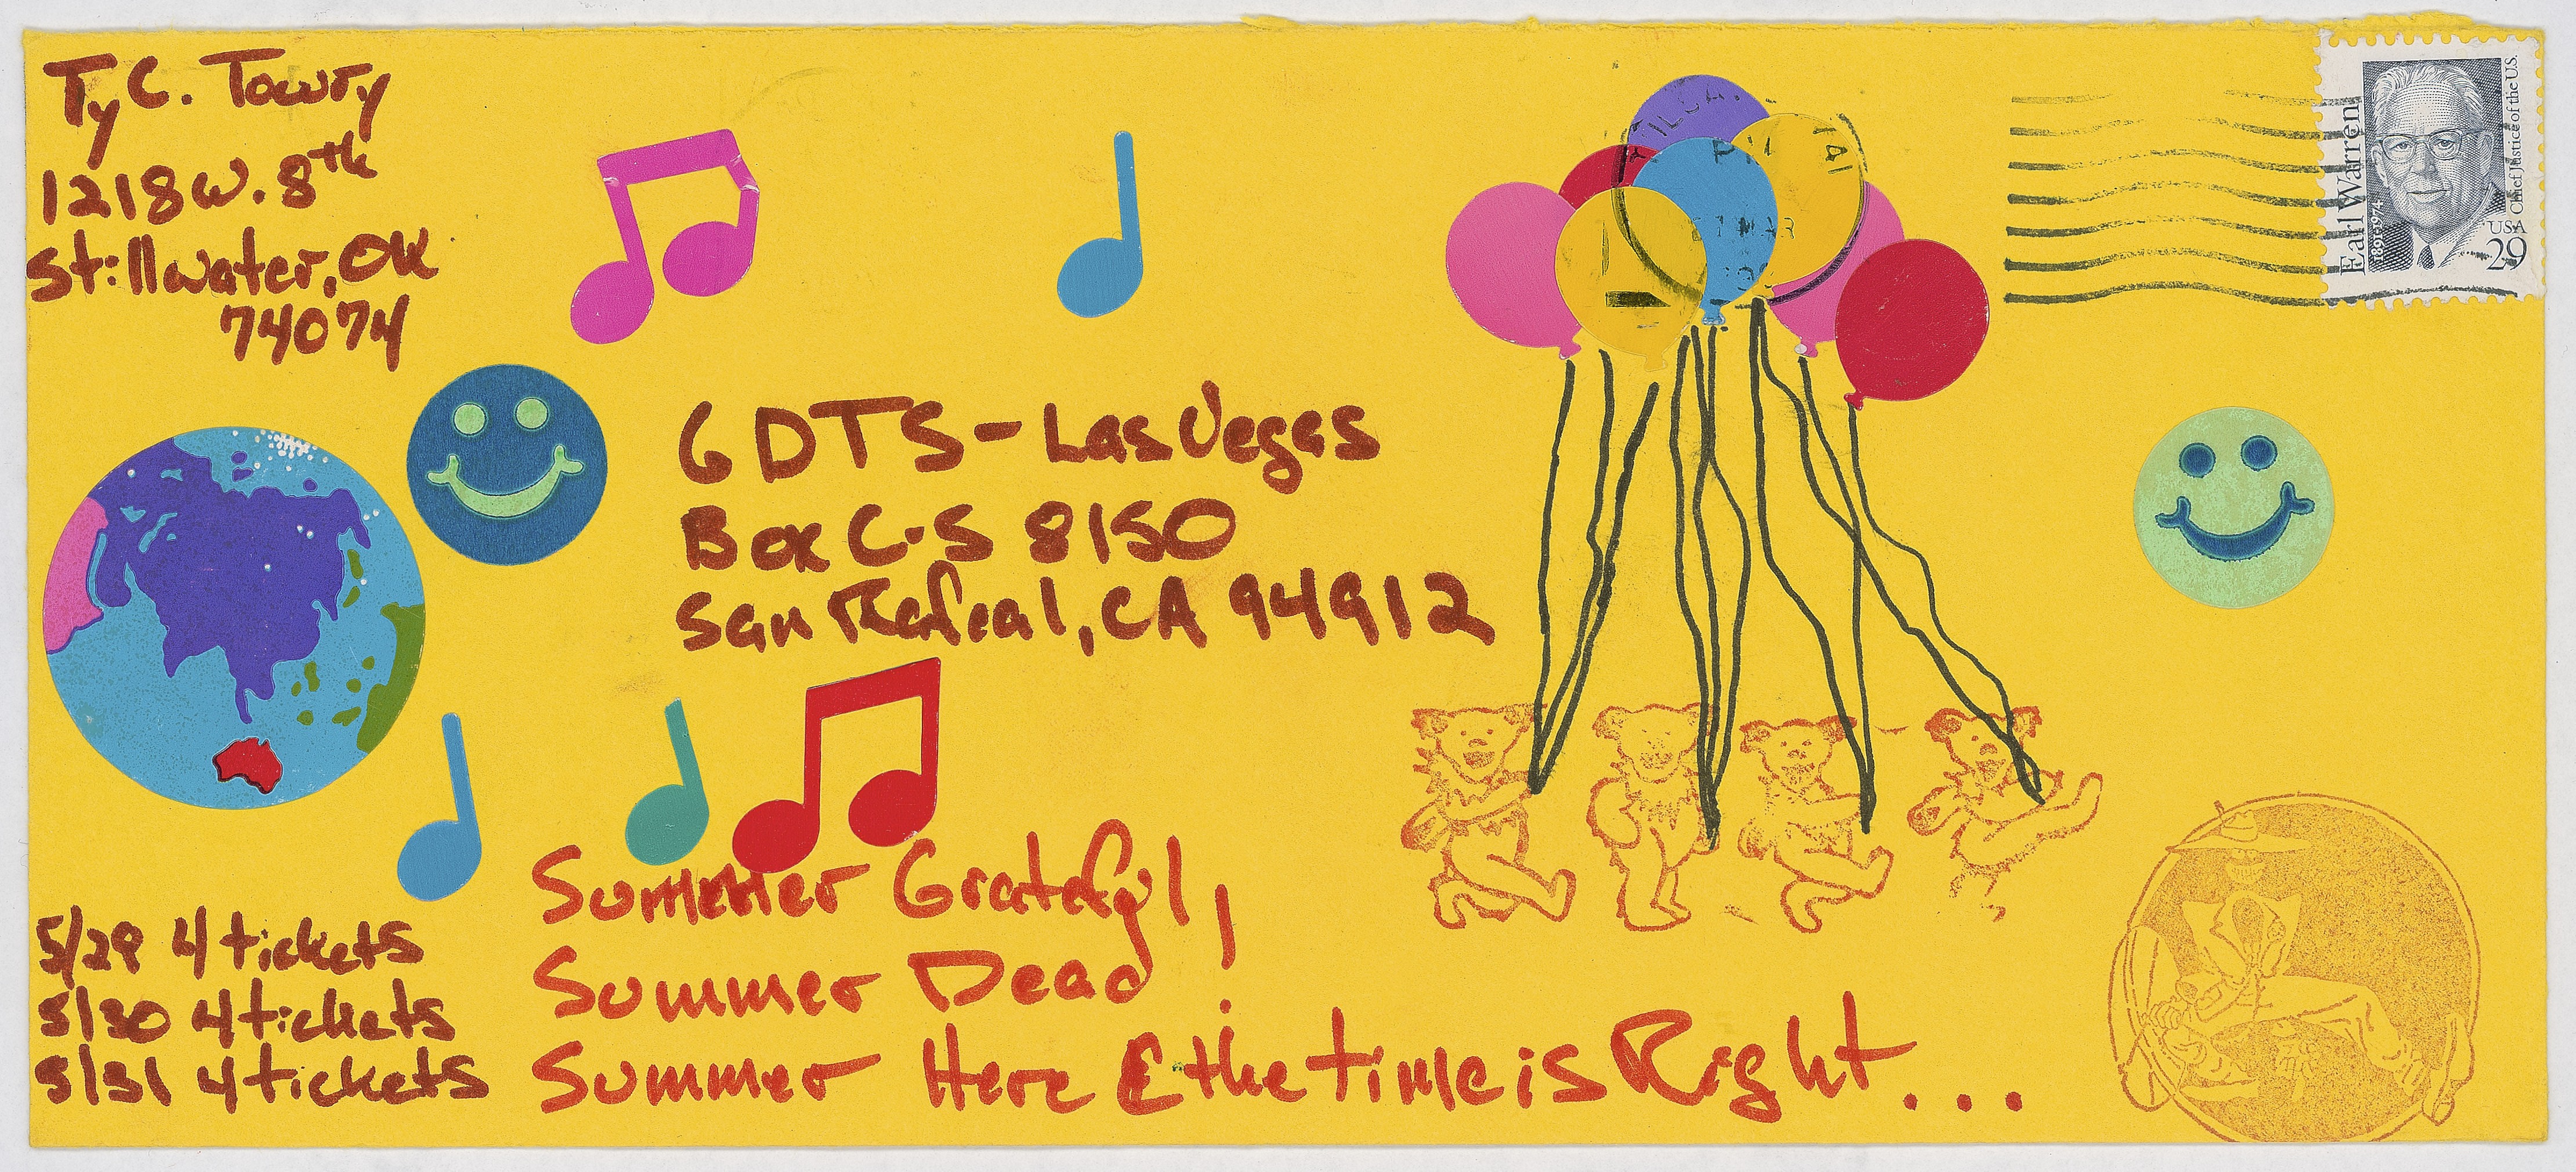 Ty C. Towry
1218 W. 8th
Stillwater, OK
74074
Earl Warren
1891-1974
Chief Justice of the U.S.
USA
29
GDTS - Las Vegas
Box C-S 8150
San Rafeal, CA 94912
Summer Grateful,
Summer Dead!
Summer Here & the time is Right...
5/29 4 tickets
5/30 4 tickets
5/31 4 tickets